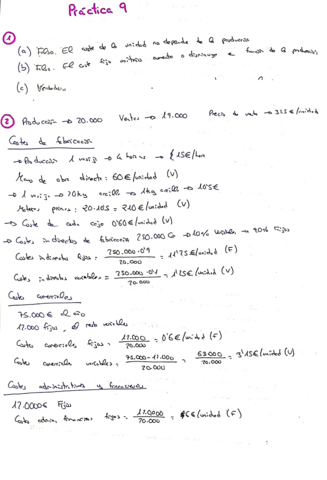 Práctica 9
① (a) Falso. El coste de la unidad no depende de la producción
(b) Falso. El coste fijo unitario aumenta o disminuye en función de la producción
(c) Verdadero
② Producción → 20.000 Ventas → 19.000 Precio de venta → 315€/unidad
Costes de fabricación
→ Producción 1 vasija → 4 horas → 15€/hora
Mano de obra directa: 60€/unidad (V)
→ 1 vasija → 20kg arcilla → 1kg arcilla → 10'5€
Materias primas: 20·10'5 = 210€/unidad (V)
→ Coste de cada caja 0'60€/unidad (V)
→ Costes indirectos de fabricación 250.000€ → 10% variables → 90% fijos
Costes indirectos fijos = 250.000·0'9 / 20.000 = 11'25€/unidad (F)
Costes indirectos variables = 250.000·0'1 / 20.000 = 1'25€/unidad (V)
Costes comerciales
75.000€ al año
12.000 fijos, el resto variables
Costes comerciales fijos = 12.000 / 20.000 = 0'6€/unidad (F)
Costes comerciales variables = 75.000-12.000 / 20.000 = 63.000 / 20.000 = 3'15€/unidad (V)
Costes administrativos y financieros
Fijos
Costes admin. financieros fijos = / 20.000 = 6€/unidad (F)